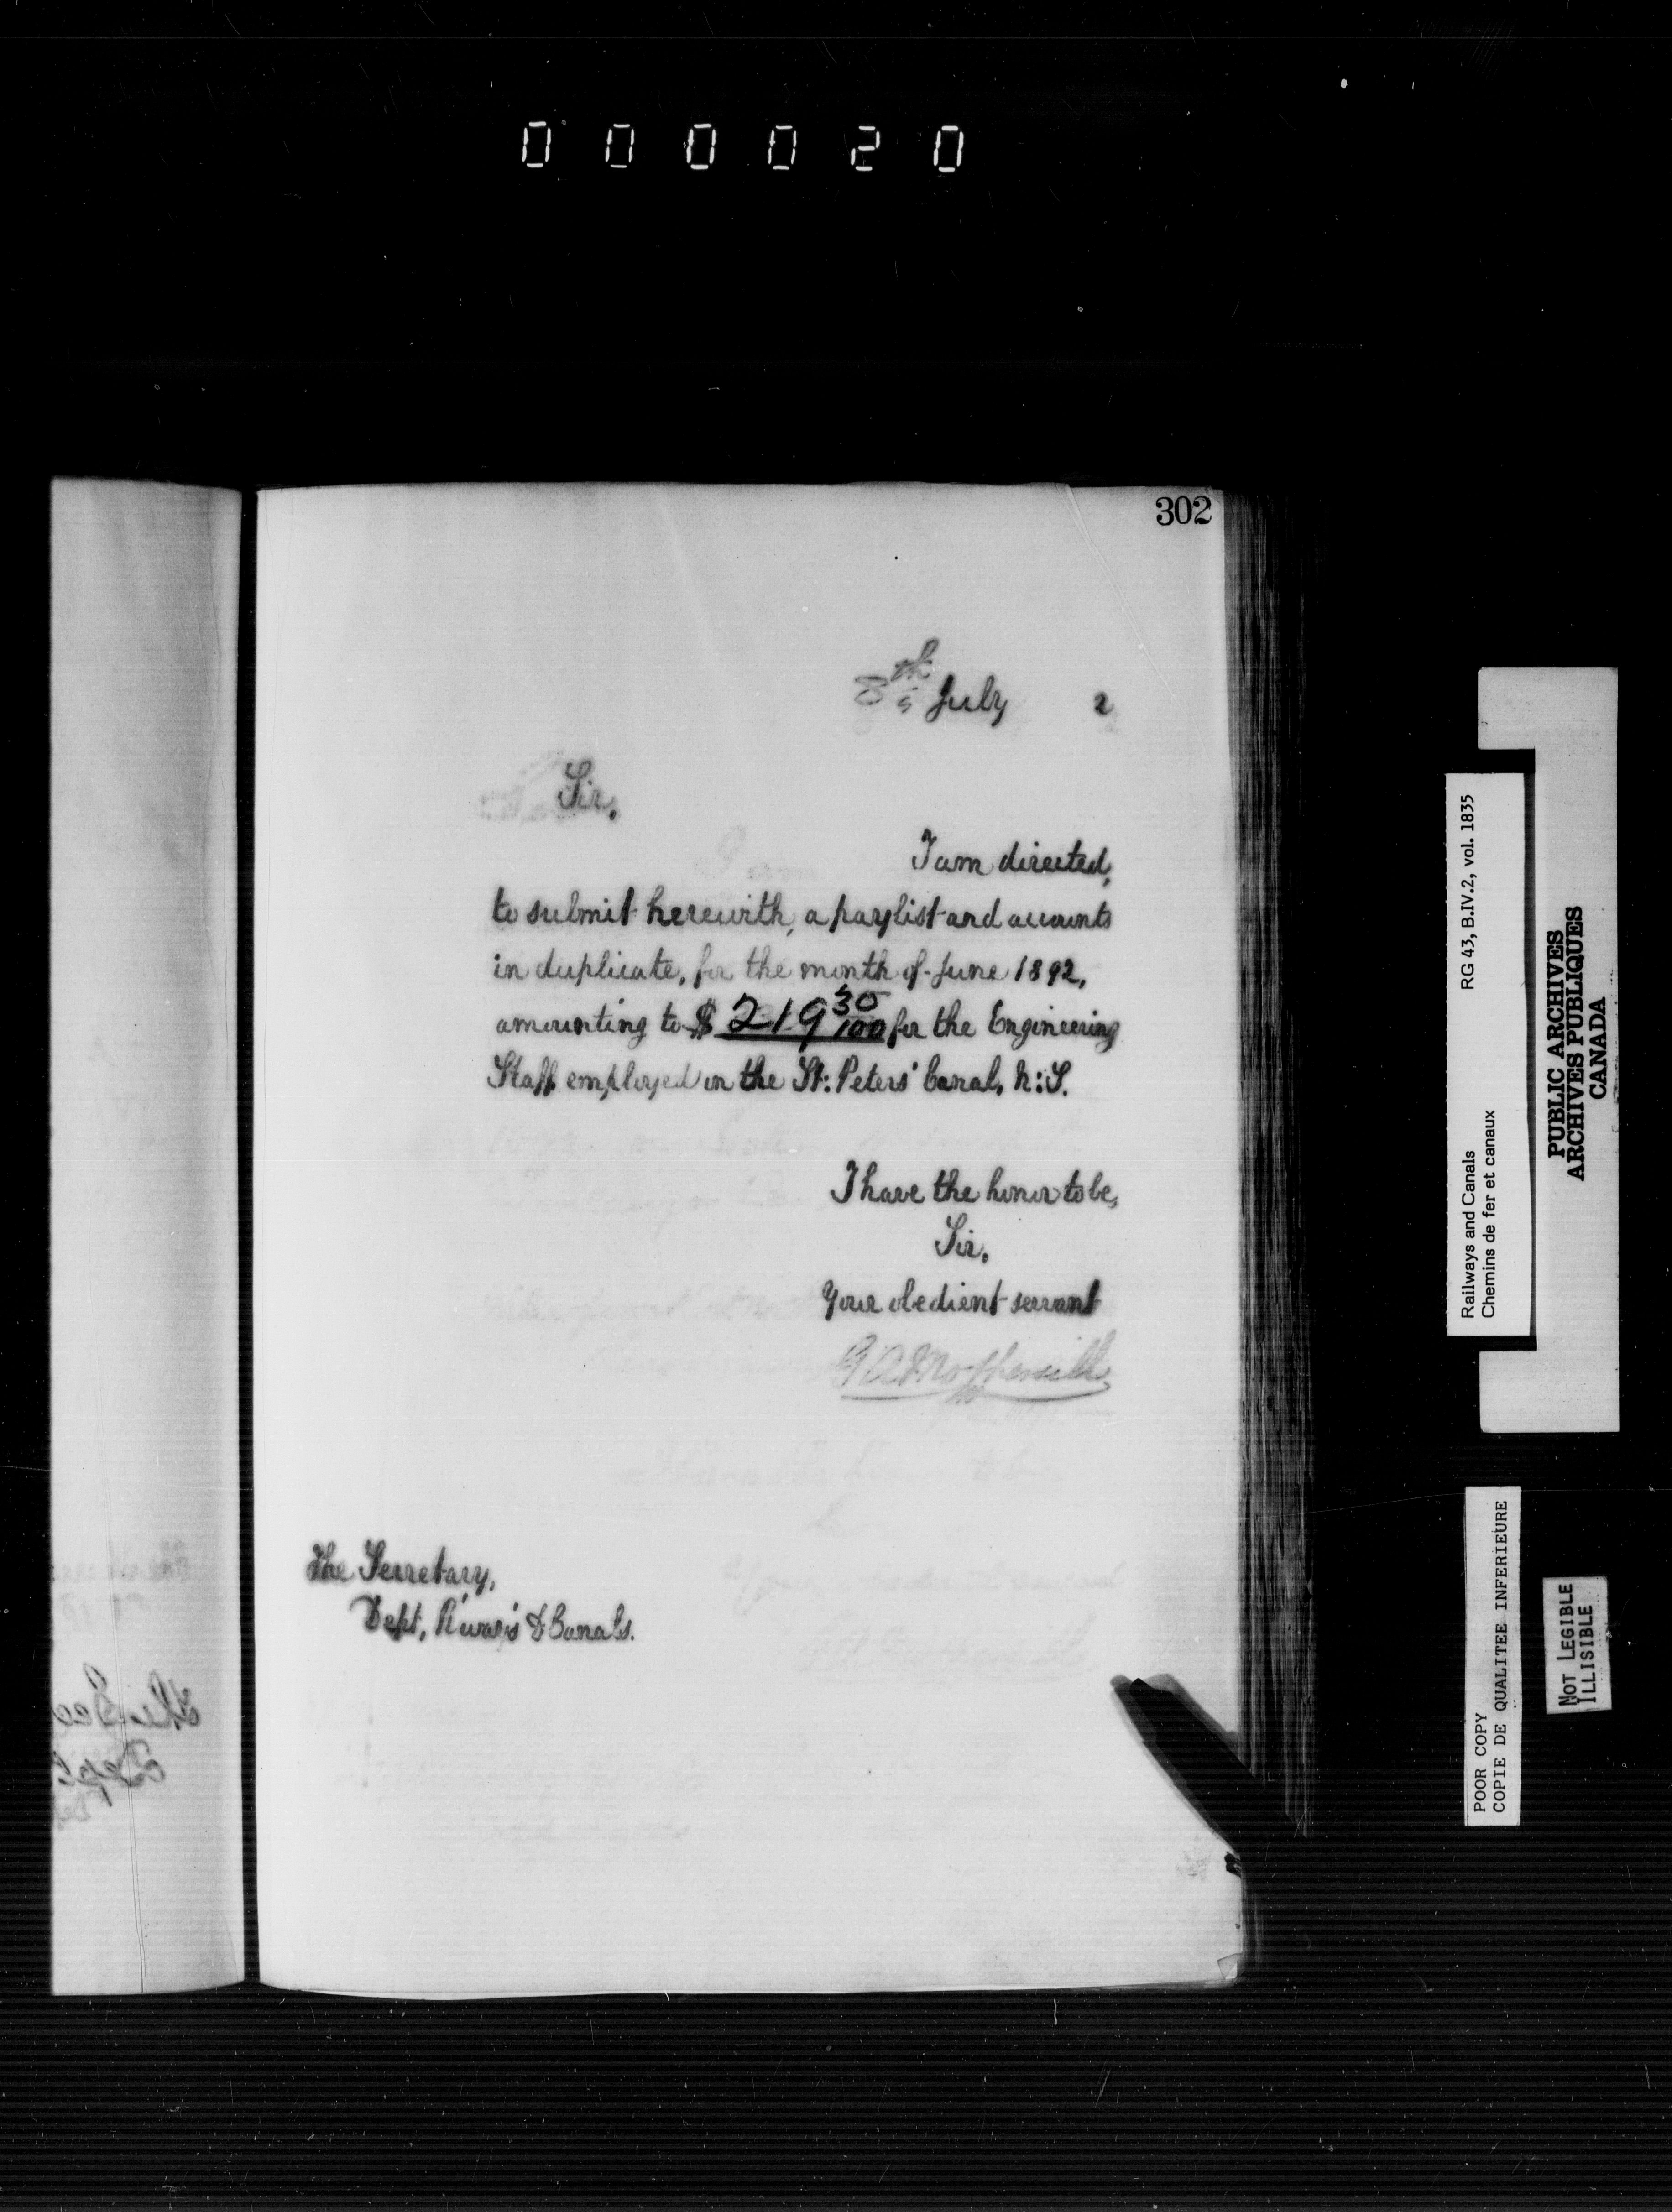 0 0 0 0 2 0
302
8th July 2
Sir,
I am directed,
to submit herewith, a paylist and accounts
in duplicate, for the month of June 1892,
amounting to $ 219 30/100 for the Engineering
Staff employed on the St: Peters' Canal, N:S.
I have the honor to be,
Sir,
Your obedient servant
The Secretary,
Dept, R'wa's & Canals.
Railways and Canals RG 43, B.IV.2, vol. 1835
Chemins de fer et canaux
PUBLIC ARCHIVES
ARCHIVES PUBLIQUES
CANADA
POOR COPY
COPIE DE QUALITEE INFERIEURE
NOT LEGIBLE
ILLISIBLE